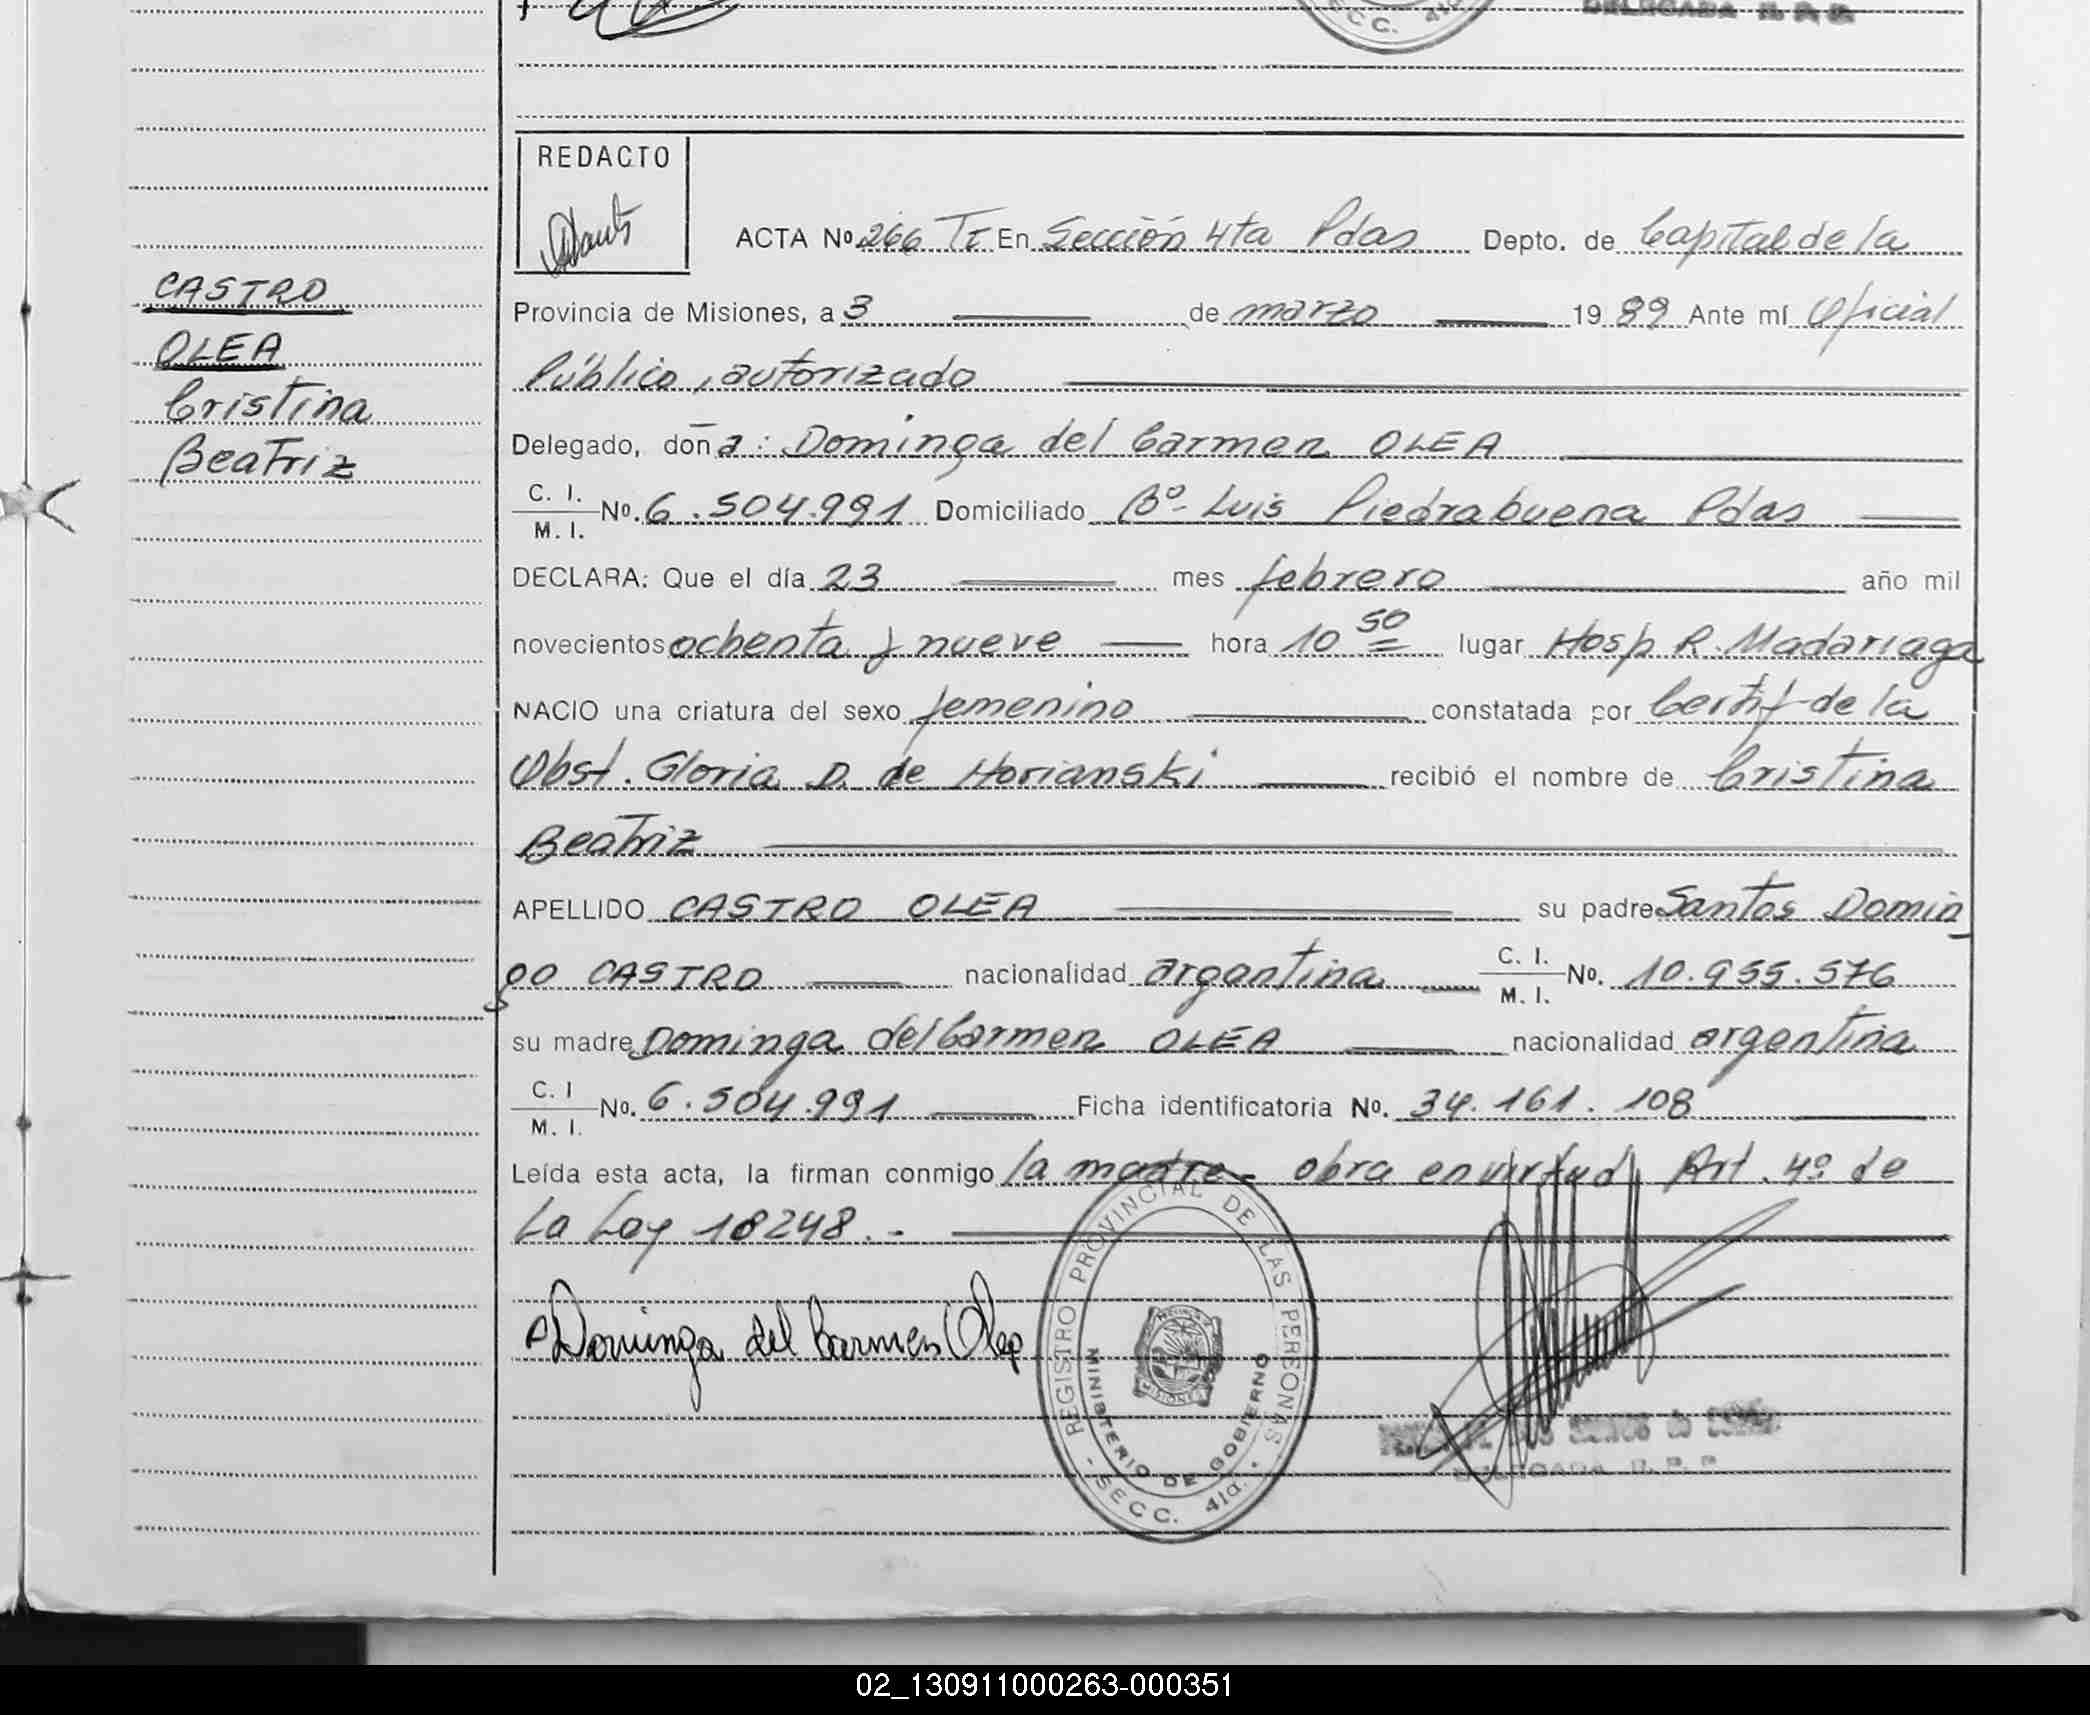 SECC. 4ta
DELEGADA R. P. P.
REDACTO
ACTA Nº 266 TI En Sección 4ta Pdas Depto. de Capital de la
CASTRO
Provincia de Misiones, a 3 de marzo 1989 Ante mí Oficial
OLEA
Público, autorizado
Cristina
Delegado, doña: Dominga del Carmen OLEA
Beatriz
C. I. / M. I. Nº. 6.504.991 Domiciliado Bº- Luis Piedrabuena Pdas
DECLARA: Que el día 23 mes febrero año mil
novecientos ochenta y nueve hora 10 50 lugar Hosp R. Madariaga
NACIO una criatura del sexo femenino constatada por Certif de la
Obst. Gloria D. de Horianski recibió el nombre de Cristina
Beatriz
APELLIDO CASTRO OLEA su padre Santos Domin
go CASTRO nacionalidad argentina C. I. / M. I. Nº. 10.955.576
su madre Dominga del Carmen OLEA nacionalidad argentina
C. I / M. I. Nº. 6.504.991 Ficha identificatoria Nº. 34.161.108
Leída esta acta, la firman conmigo la madre - obra en virtud Art. 4º de
La Ley 18248.-
Dominga del Carmen Olea
REGISTRO PROVINCIAL DE LAS PERSONAS
MINISTERIO DE GOBIERNO
MISIONES
- SECC. 4ta. -
DELEGADA R. P. P.
02_130911000263-000351